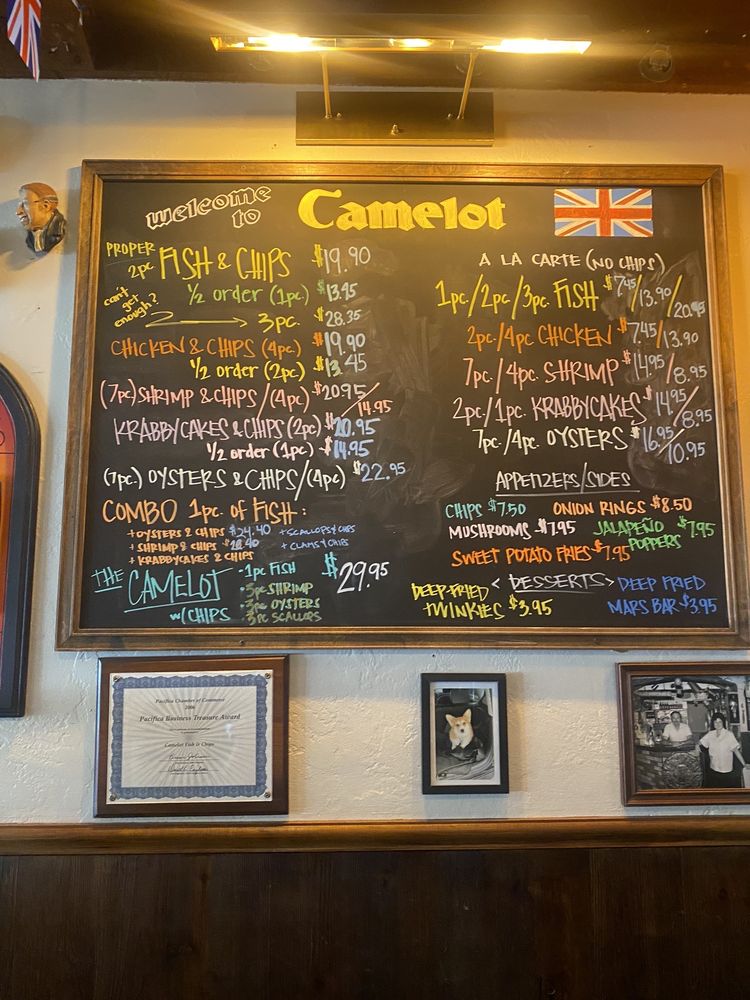 welcome to Camelot
PROPER 2pc FISH & CHIPS $19.90
1/2 order (1pc.) $13.45
can't get enough? → 3pc. $28.35
CHICKEN & CHIPS (4pc.) $19.90
1/2 order (2pc.) $13.45
(7pc.) SHRIMP & CHIPS / (4pc.) $20.95 / 14.95
KRABBYCAKES & CHIPS (2pc.) $20.95
1/2 order (1pc.) $14.95
(7pc.) OYSTERS & CHIPS / (4pc.) $22.95
COMBO 1pc. of FISH:
+ OYSTERS & CHIPS $24.40 + SCALLOPS & CHIPS
+ SHRIMP & CHIPS + CLAMS & CHIPS
+ KRABBYCAKES & CHIPS
THE CAMELOT w/ CHIPS $29.95
• 1pc FISH
• 3pc SHRIMP
• 3pc OYSTERS
• 3pc SCALLOPS
A LA CARTE (NO CHIPS)
1pc./2pc./3pc. FISH $7.45/13.90/20.95
2pc./4pc. CHICKEN $7.45/13.90
7pc./4pc. SHRIMP $14.95/8.95
2pc./1pc. KRABBYCAKES $14.95/8.95
7pc./4pc. OYSTERS $16.95/10.95
APPETIZERS/SIDES
CHIPS $7.50 ONION RINGS $8.50
MUSHROOMS $7.95 JALAPEÑO POPPERS $7.95
SWEET POTATO FRIES $7.95
< DESSERTS >
DEEP-FRIED TWINKIES $3.95
DEEP FRIED MARS BAR $3.95
Pacifica Chamber of Commerce
2006
Pacifica Business Treasure Award
Camelot Fish & Chips